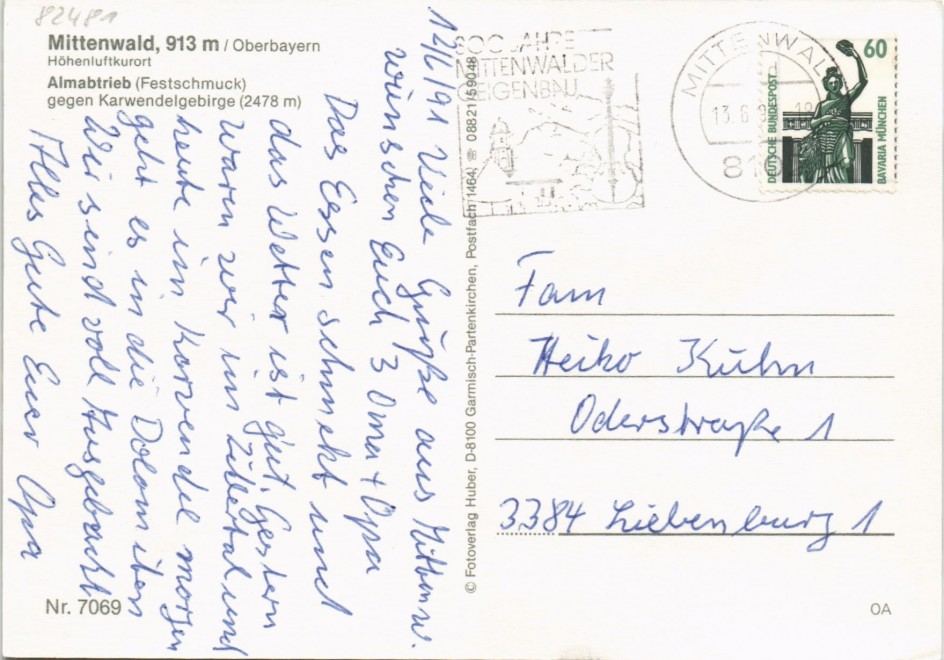 82481
Mittenwald, 913 m / Oberbayern
Höhenluftkurort
Almabtrieb (Festschmuck)
gegen Karwendelgebirge (2478 m)
12/6/91 Viele Grüße aus Mittenw.
wünschen Euch 3 Oma + Opa
Das Essen schmekt und
das Wetter ist gut. Gestern
waren wir im Zillertal und
heute im Karvendel morgen
geht es in die Dolomiten
Wir sind voll Ausgebucht
Alles Gute Euer Opa
Nr. 7069
© Fotoverlag Huber, D-8100 Garmisch-Partenkirchen, Postfach 1464, ☏ 08821/59048
300 JAHRE
MITTENWALDER
GEIGENBAU
MITTENWALD
13.6.9
81
60
DEUTSCHE BUNDESPOST
BAVARIA MÜNCHEN
Fam
Heiko Kühn
Oderstraße 1
3384 Liebenburg 1
OA